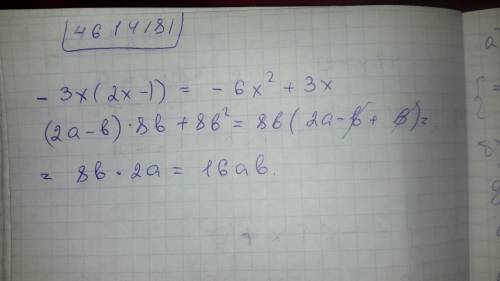 4614181
- 3x(2x-1) = - 6x² + 3x
(2a-b)·8b + 8b² = 8b(2a-b+b) =
= 8b · 2a = 16ab.